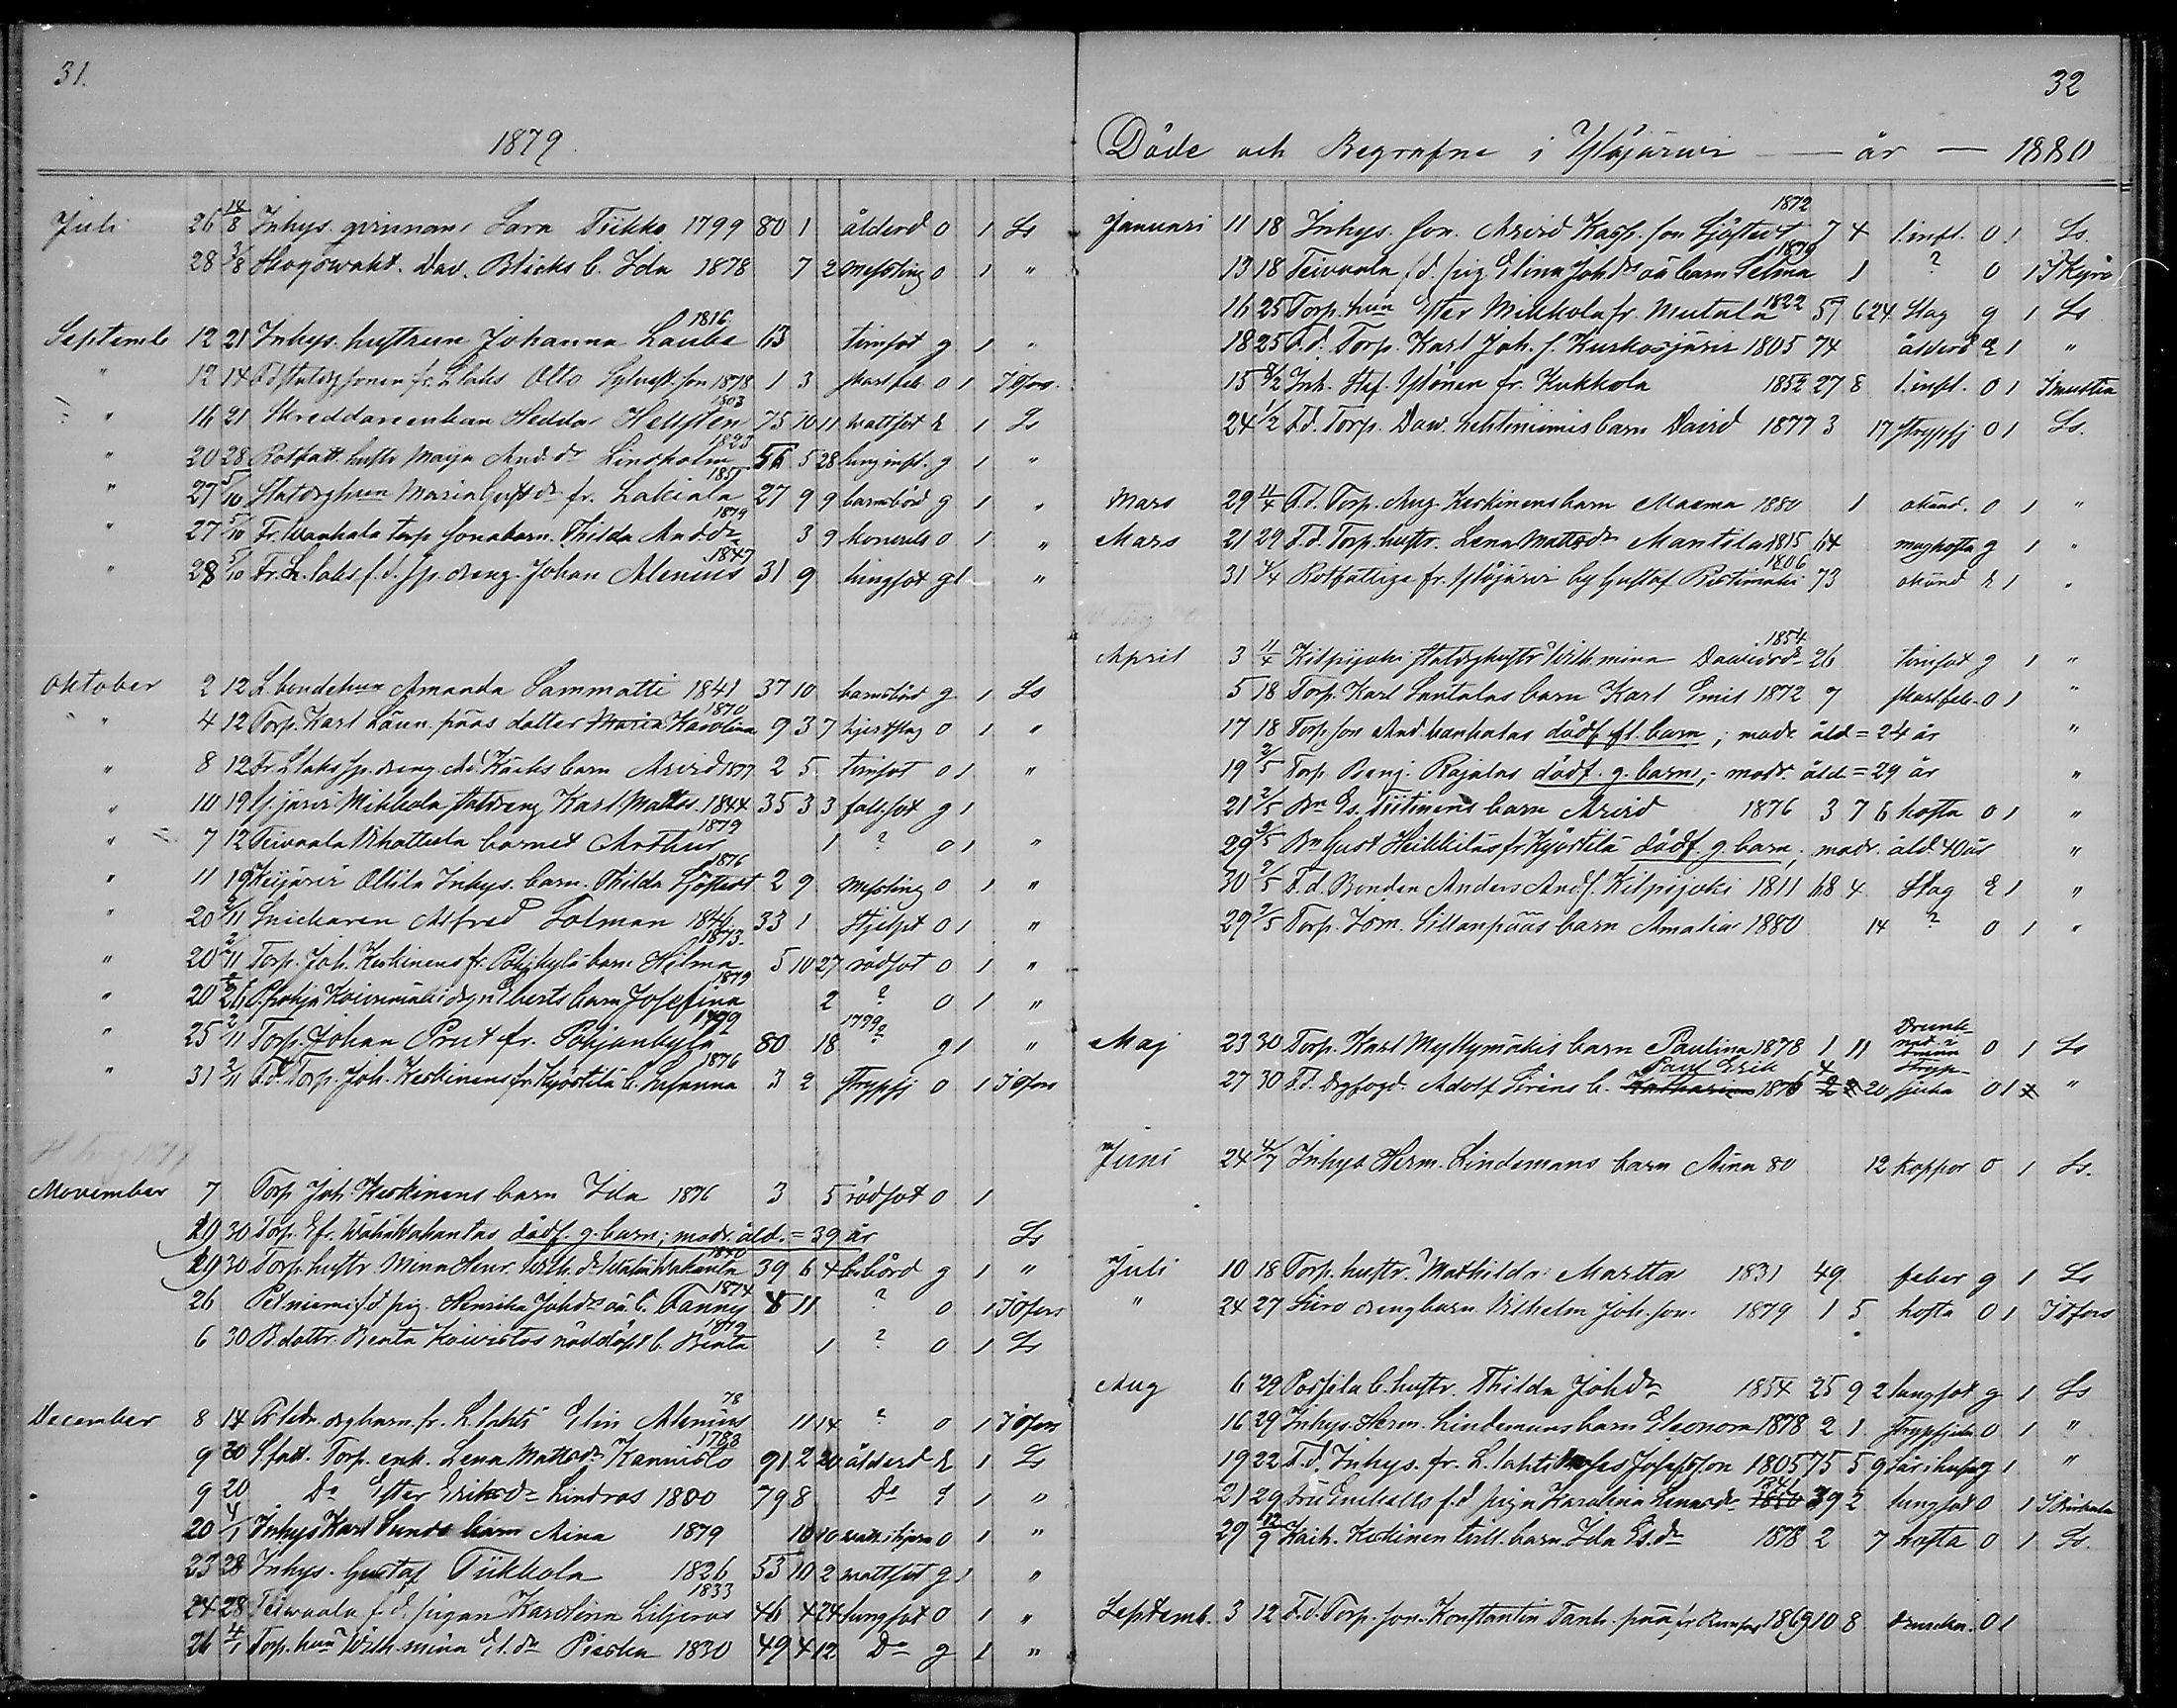 31.
1879.
Juli 26 14/8 Inhys. qvinnan Sara Tiikko 1799 80 1 ålderd o 1 Ls
" 28 3/8 Skogswakt. Dav. Blicks b. Ida 1878 7 2 Messling o 1 "
Septemb 12 21 Inhys. hustrun Johanna Laube 1816 63 tvinsot g 1 "
" 12 14 Otto Sylvest. son 1878 1 3 skarl.feb. o 1 Tfors.
" 16 21 Skreddareenkan Hedda Hellsten 1803 75 10 11 wattsot E 1 Ls
" 20 28 Rotfatt. hustr Maija And.dr Lindholm 1823 56 5 28 lunginfl. g 1 "
" 27 5/10 Statdrghun Maria Gust.dr fr. Lakiala 1851 27 9 9 barnsbörd g 1 "
" 27 5/10 Fr. Wanhala torp sonabarn. Thilda And.dr 1879 3 9 konvuls o 1 "
" 28 5/10 Fr. L.laks f.d. sp. dreng. Johan Alenius 1847 31 9 lungsot g 1 "
Oktober 2 12 L. bondehun Amanda Sammatti 1841 37 10 barnsbörd g 1 Ls
" 4 12 Torp. Karl Länn.pääs dotter Maria Karolina 1870 9 3 7 hjertslag o 1 "
" 8 12 Fr. L.laks sp. dreng Kocks barn Arvid 1877 2 5 tvinsot o 1 "
" 10 19 Mikkola statdreng Karl Matts. 1844 35 3 3 fallsot g 1
" 7 12 Teivaala Uhattula barnet Arthur 1879 1 ? o 1 "
" 11 19 Keijärvi Ollila Inhys. barn. Thilda Sjöstedt 1876 2 9 Messling o 1 "
" 20 2/11 Snickaren Alfred Tolman 1846 33 1 o 1 "
" 20 2/11 Torp. Joh. Keskinens fr. Pohj.kylä barn Hilma 1873 5 10 27 rödsot o 1 "
" 20 26 Eberts barn Josefina 1879 2 ? o 1 "
" 25 2/11 Torp. Johan Prut fr. Pohjankylä 1799 80 18 1799 ? g 1 "
" 31 2/11 F.d. Torp. Joh. Keskinens fr. Kyöstilä b. Susanna 1876 3 2 strypsj o 1 Tfors
November 7 Torp Joh. Keskinens barn Ida 1876 3 5 rödsot o 1
29 30 Torp. Efr. WähäWahantas dödf. g. barn; modr. åld. = 39 år Ls
29 30 Torp. hustr Minna Henr. Wilh.dr WähäWahanta 1840 39 6 4 b.börd g 1 "
26 Petniemi f.d. pig. Henrika Joh.dr oä b. Fanny 1874 5 11 ? o 1 Tfors
6 30 B.dottr. Benta Koivistos nöddöpt b. Benta 1879 1 ? o 1 Ls
December 8 14 drgbarn. fr. L.lahti Elin Alenius 78 11 14 ? o 1 Tfors
9 30 Sfatt. Torp. enk. Lena Mattsdr Kannisto 1788 91 2 20 ålderd E 1 Ls
9 20 Do Ester Eriksdr Lindros 1800 79 8 Do E 1 "
20 4/1 Inhys Karl Sunds barn Mina 1879 10 10 watt.i hjern o 1 "
23 28 Inhys. Gustaf Tiikkola 1826 53 10 2 wattsot g 1 "
24 28 Teivaala f.d. pigan Karolina Liljeros 1833 46 4 24 lungsot o 1 "
26 4/1 Torp. hun Wilh.mina El.dr Piiska 1830 49 4 12 Do g 1 "
32
Döde och Begrafne i Ylöjärvi — år — 1880
Januari 11 18 Inhys. son. Arvid Kasp. son Sjöstedt 1872 7 4 l.infl. o 1 Ls.
13 18 Teivaala f.d. pig. Elina Joh.drs oä barn Selma 1879 1 ? o 1 T Kyrö
16 25 Torp. hun Ester Mikkola fr. Mutala 1822 57 6 24 Slag g 1 Ls
18 25 F.d. Torp. Karl Joh. s. Kurkosjärvi 1805 74 ålderd E 1 "
15 8/2 Inh. Stef. Ylönen fr. Kukkola 1852 27 8 l.infl. o 1
24 1/2 F.d. Torp. Daw. Lehtiniemis barn David 1877 3 17 strypsj o 1 Ls.
Mars 29 4/4 F.d. Torp. Aug. Keskinens barn Maema 1880 1 okänd. o 1 "
Mars 21 29 F.d. Torp. hustr. Lena Mattsdr Mantila 1815 64 maghosta g 1 "
31 4/4 Rotfattige fr. Ylöjärvi by Gustaf Ristimäki 1806 73 okänd E 1 "
April 3 11/4 Kilpijoki statdrghustr Wilh.mina Dawidsdr 1854 26 tvinsot g 1 "
5 18 Torp. Karl Santalas barn Karl Emil 1872 7 skarl.feb. o 1 "
17 18 Torp. son And. Wanhalas dödf. fl. barn; modr åld = 24 år "
19 2/5 Torp. Benj. Rajalas dödf. g. barn; modr. åld. = 29 år "
21 2/5 Bn Es. Tiitinens barn Arvid 1876 3 7 6 hosta o 1 "
29 2/5 Bn Gust Heikkiläs fr Kyöstilä dödf. g. barn; modr. åld. 40 år "
30 2/5 F.d. Bonden Anders And.s. Kilpijoki 1811 68 4 Slag E 1 "
29 2/5 Torp. Jom. Sillanpääs barn Amalia 1880 14 ? o 1 "
Maj 23 30 Torp. Karl Myllymäkis barn Paulina 1878 1 11 Drunknad i brunn o 1 Ls
27 30 F.d. drgfogd. Adolf Siréns b. Paul Erik 1876 4 20 strypsjuka o 1 "
Juni 24 4/7 Inhys Herm. Lindemans barn Aina 80 12 koppor o 1 Ls.
Juli 10 18 Torp. hustr. Mathilda Martta 1831 49 feber g 1 Ls
" 24 27 Siuro drengbarn Wilhelm Joh. son 1879 1 5 hosta o 1 Tfors
Aug 6 29 Possila b.hustr. Thilda Johdr 1854 25 9 2 lungsot g 1 Ls
16 29 Inhys. Herm. Lindemans barn Eleonora 1878 2 1 strypsjuka o 1 "
19 22 F.d. Inhys. fr. L.lahti Moses Josefsson 1805 75 5 9 g 1 "
21 29 f.d. pign Karolina Lenasdr 1841 39 2 lungsot o 1 T Birkala
29 12/9 Keskinen tvill. barn. Ida Ed.dr 1878 2 7 hosta o 1 Ls.
Septemb. 3 12 F.d. Torp. son. Konstantin Tank.pää 1869 10 8 drunkn. o 1